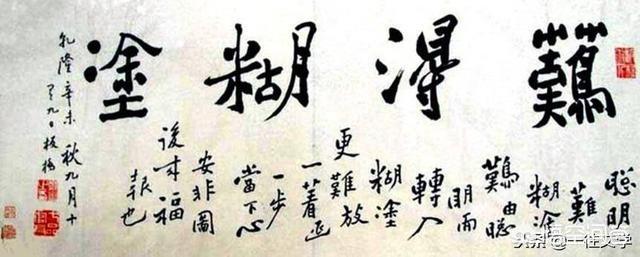 難得糊塗
聰明
難
糊塗
難由聰
明而
轉入
糊塗
更難放
一著退
一步
當下心
安非圖
後來福
報也
乾隆辛未秋九月十
有九日板橋
头条